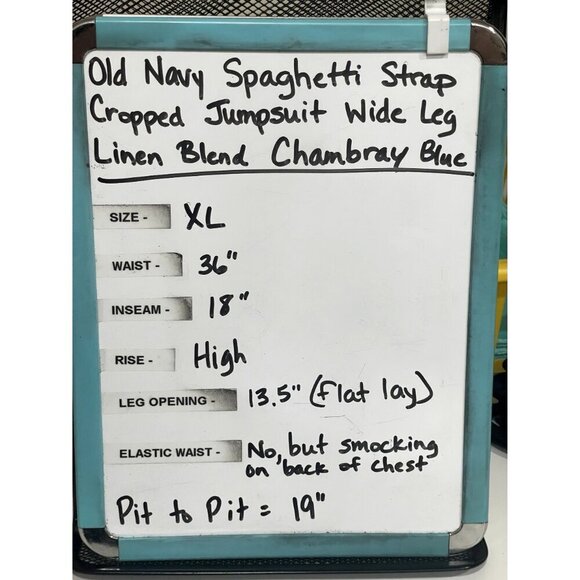 Old Navy Spaghetti Strap
Cropped Jumpsuit Wide Leg
Linen Blend Chambray Blue
SIZE - XL
WAIST - 36"
INSEAM - 18"
RISE - High
LEG OPENING - 13.5" (flat lay)
ELASTIC WAIST - No, but smocking
on back of chest
Pit to Pit = 19"